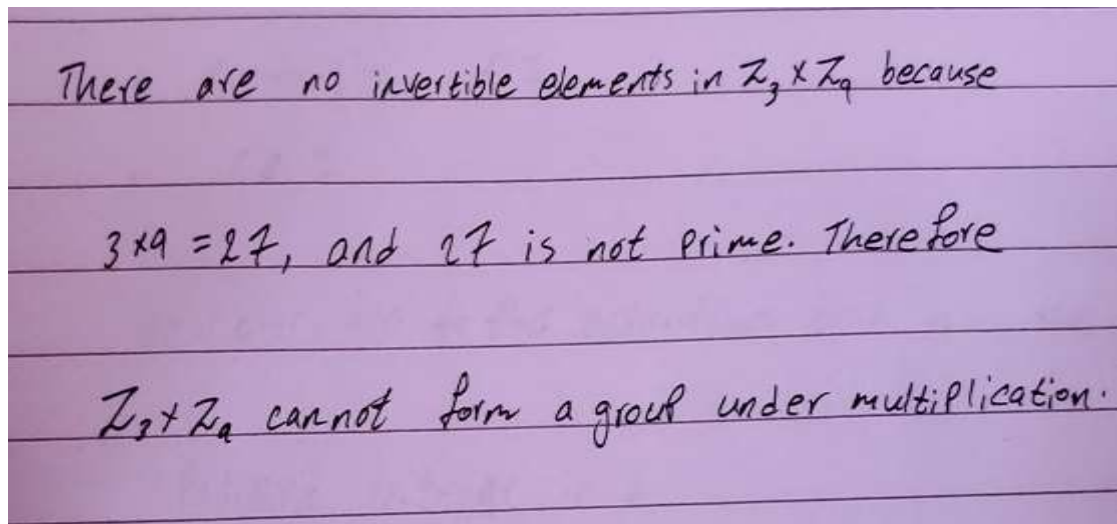 There are no invertible elements in Z₃ × Z₉ because
3×9 = 27, and 27 is not prime. Therefore
Z₃ × Z₉ cannot form a group under multiplication.